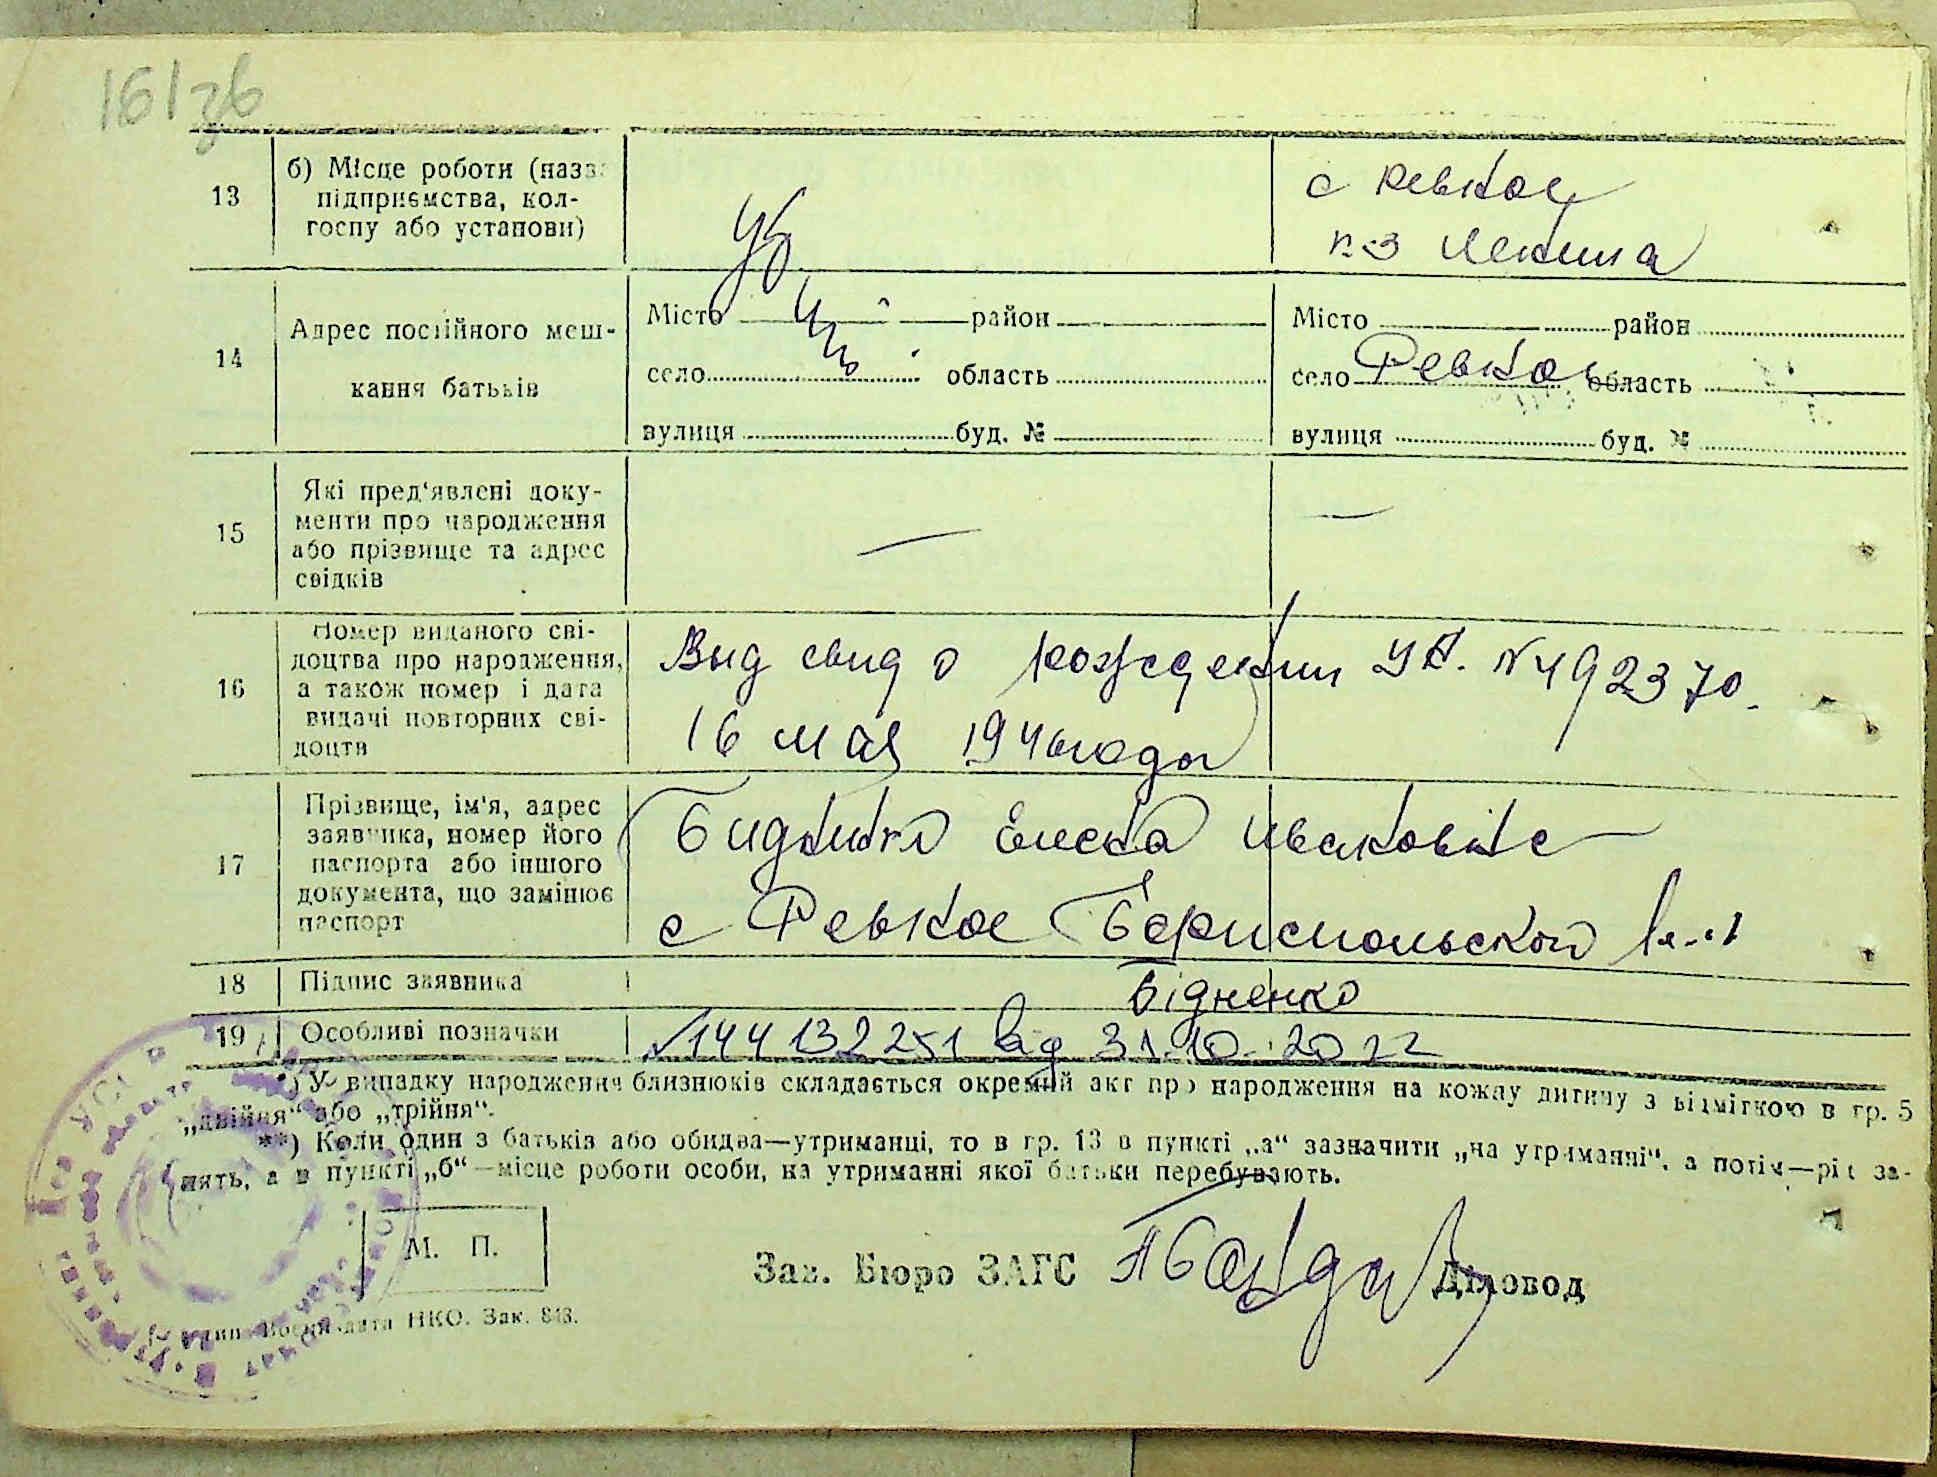 161зв
13
б) Місце роботи (назва
підприємства, кол-
госпу або установи)
с Ревное
к-з Ленина
14
Адрес постійного меш-
кання батьків
Місто район
село область
вулиця буд. №
Місто район
село Ревное область
вулиця буд. №
15
Які пред'явлені доку-
менти про народження
або прізвище та адрес
свідків
—
—
16
Номер виданого сві-
доцтва про народження,
а також номер і дата
видачі повторних сві-
доцтв
Выд свид о рождении УА. № 492370.
16 мая 194 года
17
Прізвище, ім'я, адрес
заявника, номер його
паспорта або іншого
документа, що замінює
паспорт
Бидненко Елена Ивановна
с Ревное Бориспольского
18
Підпис заявника
Бідненко
19
Особливі позначки
№144132251 від 31.10.2022
*) У випадку народження близнюків складається окремий акт про народження на кожну дитину з відміткою в гр. 5
„двійня“ або „трійня“.
**) Коли один з батьків або обидва—утриманці, то в гр. 13 в пункті „а“ зазначити „на утриманні“, а потім—рід за-
нять, а в пункті „б“—місце роботи особи, на утриманні якої батьки перебувають.
М. П.
Зав. Бюро ЗАГС
Діловод
НКО. Зак. 843.